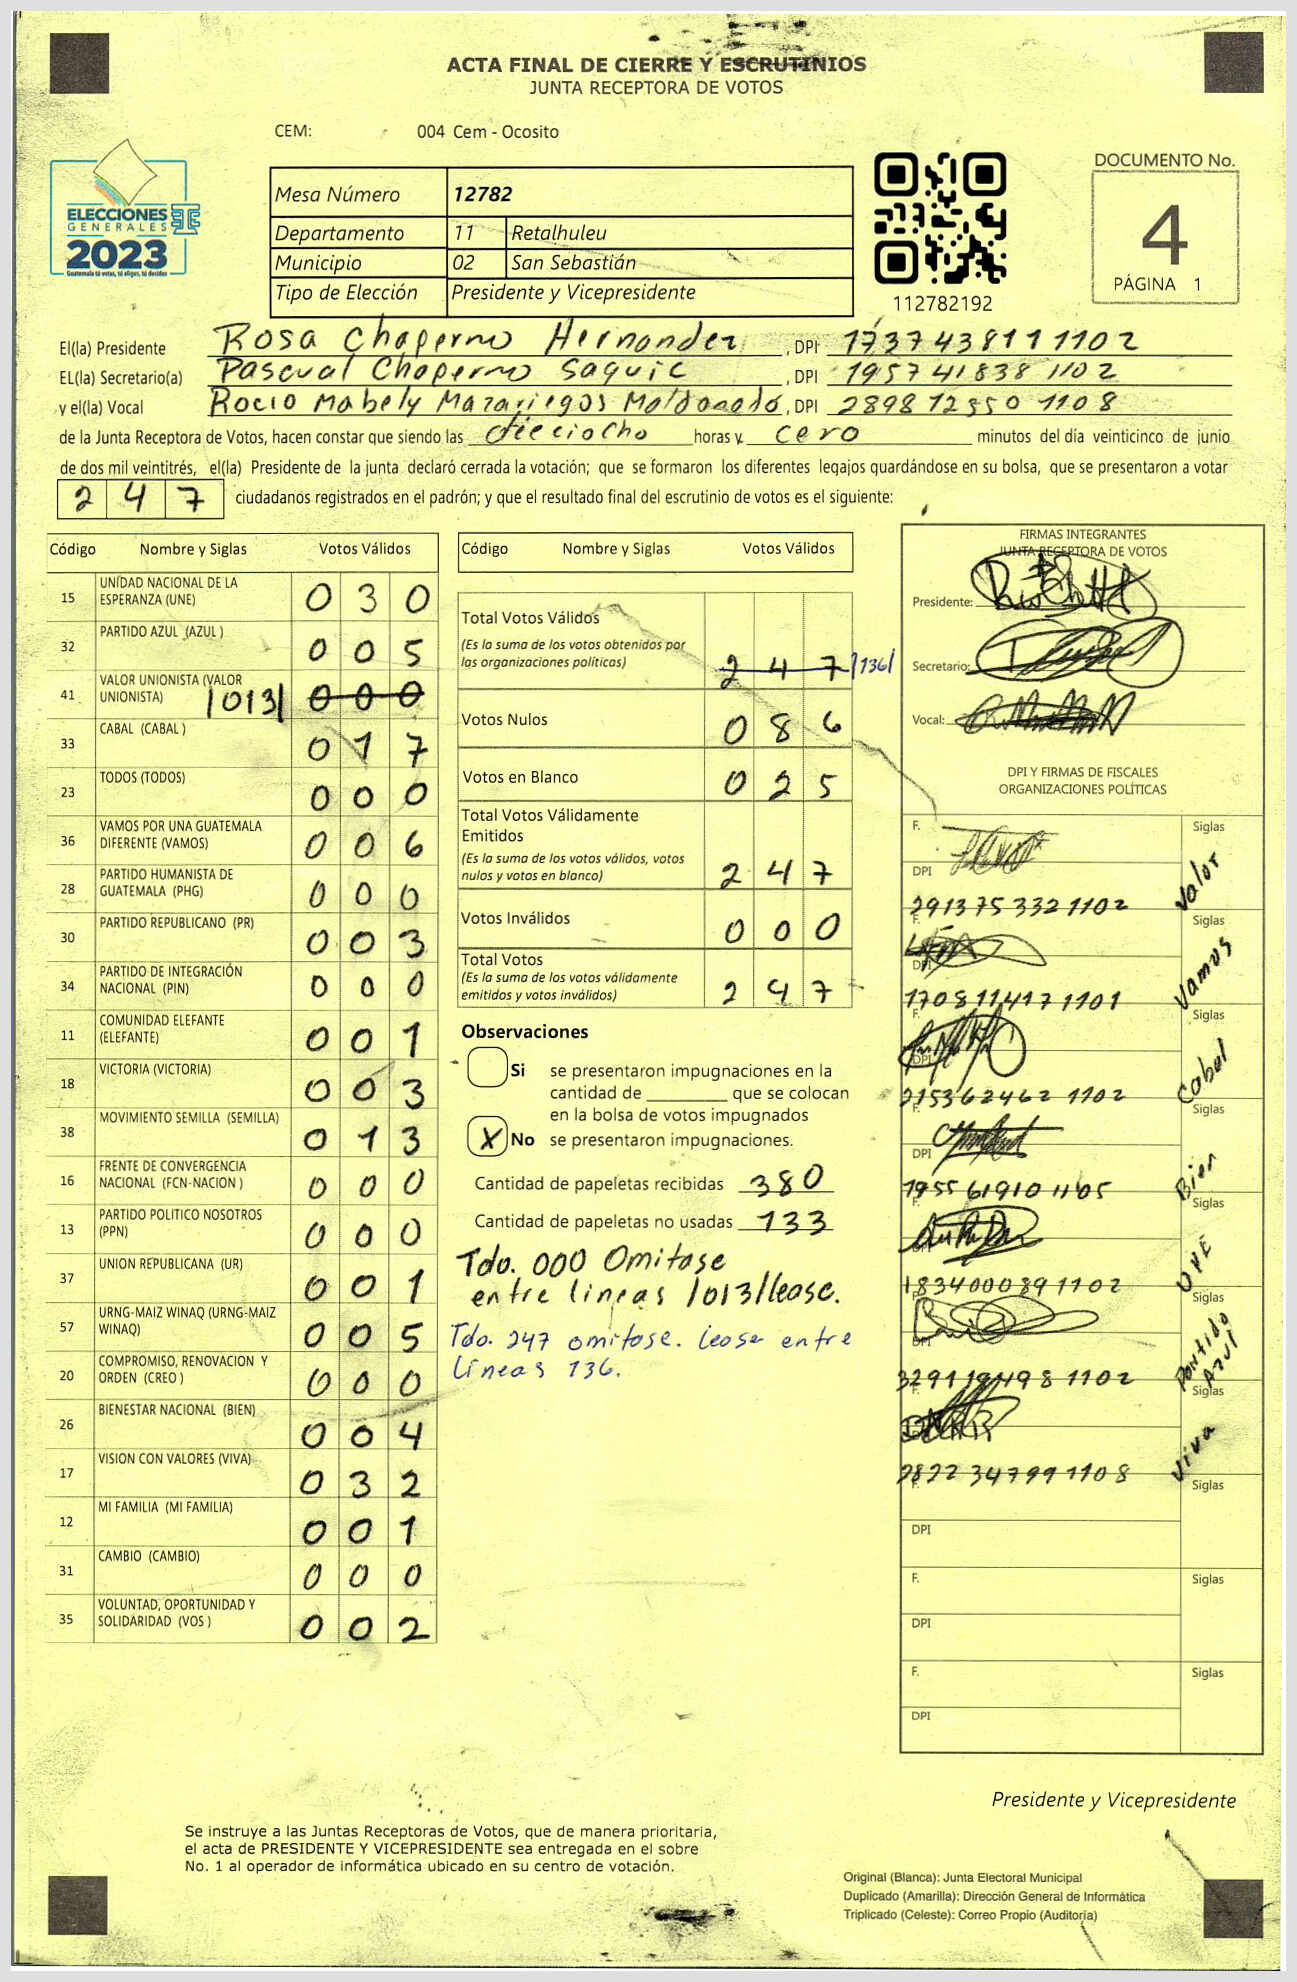 ACTA FINAL DE CIERRE Y ESCRUTINIOS
JUNTA RECEPTORA DE VOTOS
CEM: 004 Cem - Ocosito
ELECCIONES
GENERALES
2023
Guatemala tú votas, tú eliges, tú decides
Mesa Número 12782
Departamento 11 Retalhuleu
Municipio 02 San Sebastián
Tipo de Elección Presidente y Vicepresidente
112782192
DOCUMENTO No.
4
PÁGINA 1
El(la) Presidente Rosa Chaperno Hernandez, DPI 1737438111102
EL(la) Secretario(a) Pascual Chaperno Saquic, DPI 1957418381102
y el(la) Vocal Rocio Mabely Mazariegos Maldonado, DPI 2898123501108
de la Junta Receptora de Votos, hacen constar que siendo las dieciocho horas y cero minutos del día veinticinco de junio
de dos mil veintitrés, el(la) Presidente de la junta declaró cerrada la votación; que se formaron los diferentes legajos guardándose en su bolsa, que se presentaron a votar
247 ciudadanos registrados en el padrón; y que el resultado final del escrutinio de votos es el siguiente:
Código Nombre y Siglas Votos Válidos
15 UNIDAD NACIONAL DE LA ESPERANZA (UNE) 030
32 PARTIDO AZUL (AZUL ) 005
41 VALOR UNIONISTA (VALOR UNIONISTA) /013/ 000
33 CABAL (CABAL ) 017
23 TODOS (TODOS) 000
36 VAMOS POR UNA GUATEMALA DIFERENTE (VAMOS) 006
28 PARTIDO HUMANISTA DE GUATEMALA (PHG) 000
30 PARTIDO REPUBLICANO (PR) 003
34 PARTIDO DE INTEGRACIÓN NACIONAL (PIN) 000
11 COMUNIDAD ELEFANTE (ELEFANTE) 001
18 VICTORIA (VICTORIA) 003
38 MOVIMIENTO SEMILLA (SEMILLA) 013
16 FRENTE DE CONVERGENCIA NACIONAL (FCN-NACION ) 000
13 PARTIDO POLITICO NOSOTROS (PPN) 000
37 UNION REPUBLICANA (UR) 001
57 URNG-MAIZ WINAQ (URNG-MAIZ WINAQ) 005
20 COMPROMISO, RENOVACION Y ORDEN (CREO ) 000
26 BIENESTAR NACIONAL (BIEN) 004
17 VISION CON VALORES (VIVA) 032
12 MI FAMILIA (MI FAMILIA) 001
31 CAMBIO (CAMBIO) 000
35 VOLUNTAD, OPORTUNIDAD Y SOLIDARIDAD (VOS ) 002
Código Nombre y Siglas Votos Válidos
Total Votos Válidos
(Es la suma de los votos obtenidos por
las organizaciones políticas) 247 /136/
Votos Nulos 086
Votos en Blanco 025
Total Votos Válidamente
Emitidos
(Es la suma de los votos válidos, votos
nulos y votos en blanco) 247
Votos Inválidos 000
Total Votos
(Es la suma de los votos válidamente
emitidos y votos inválidos) 247
Observaciones
Si se presentaron impugnaciones en la
cantidad de ________ que se colocan
en la bolsa de votos impugnados
X No se presentaron impugnaciones.
Cantidad de papeletas recibidas 380
Cantidad de papeletas no usadas 133
Tdo. 000 Omitase
entre lineas /013/lease.
Tdo. 247 omitase. lease entre
lineas 136.
FIRMAS INTEGRANTES
JUNTA RECEPTORA DE VOTOS
Presidente:
Secretario:
Vocal:
DPI Y FIRMAS DE FISCALES
ORGANIZACIONES POLÍTICAS
F. Siglas
DPI 2913753321102 Valor
F. Siglas
DPI 1708114171101 Vamos
F. Siglas
DPI 2153624621102 Cabal
F. Siglas
DPI 1955619101105 Bien
F. Siglas
DPI 1834000891102 UNE
F. Siglas
DPI 3291194981102 Partido Azul
F. Siglas
2822347991108 Viva
F. Siglas
DPI
F. Siglas
DPI
F. Siglas
DPI
Presidente y Vicepresidente
Se instruye a las Juntas Receptoras de Votos, que de manera prioritaria,
el acta de PRESIDENTE Y VICEPRESIDENTE sea entregada en el sobre
No. 1 al operador de informática ubicado en su centro de votación.
Original (Blanca): Junta Electoral Municipal
Duplicado (Amarilla): Dirección General de Informática
Triplicado (Celeste): Correo Propio (Auditoría)